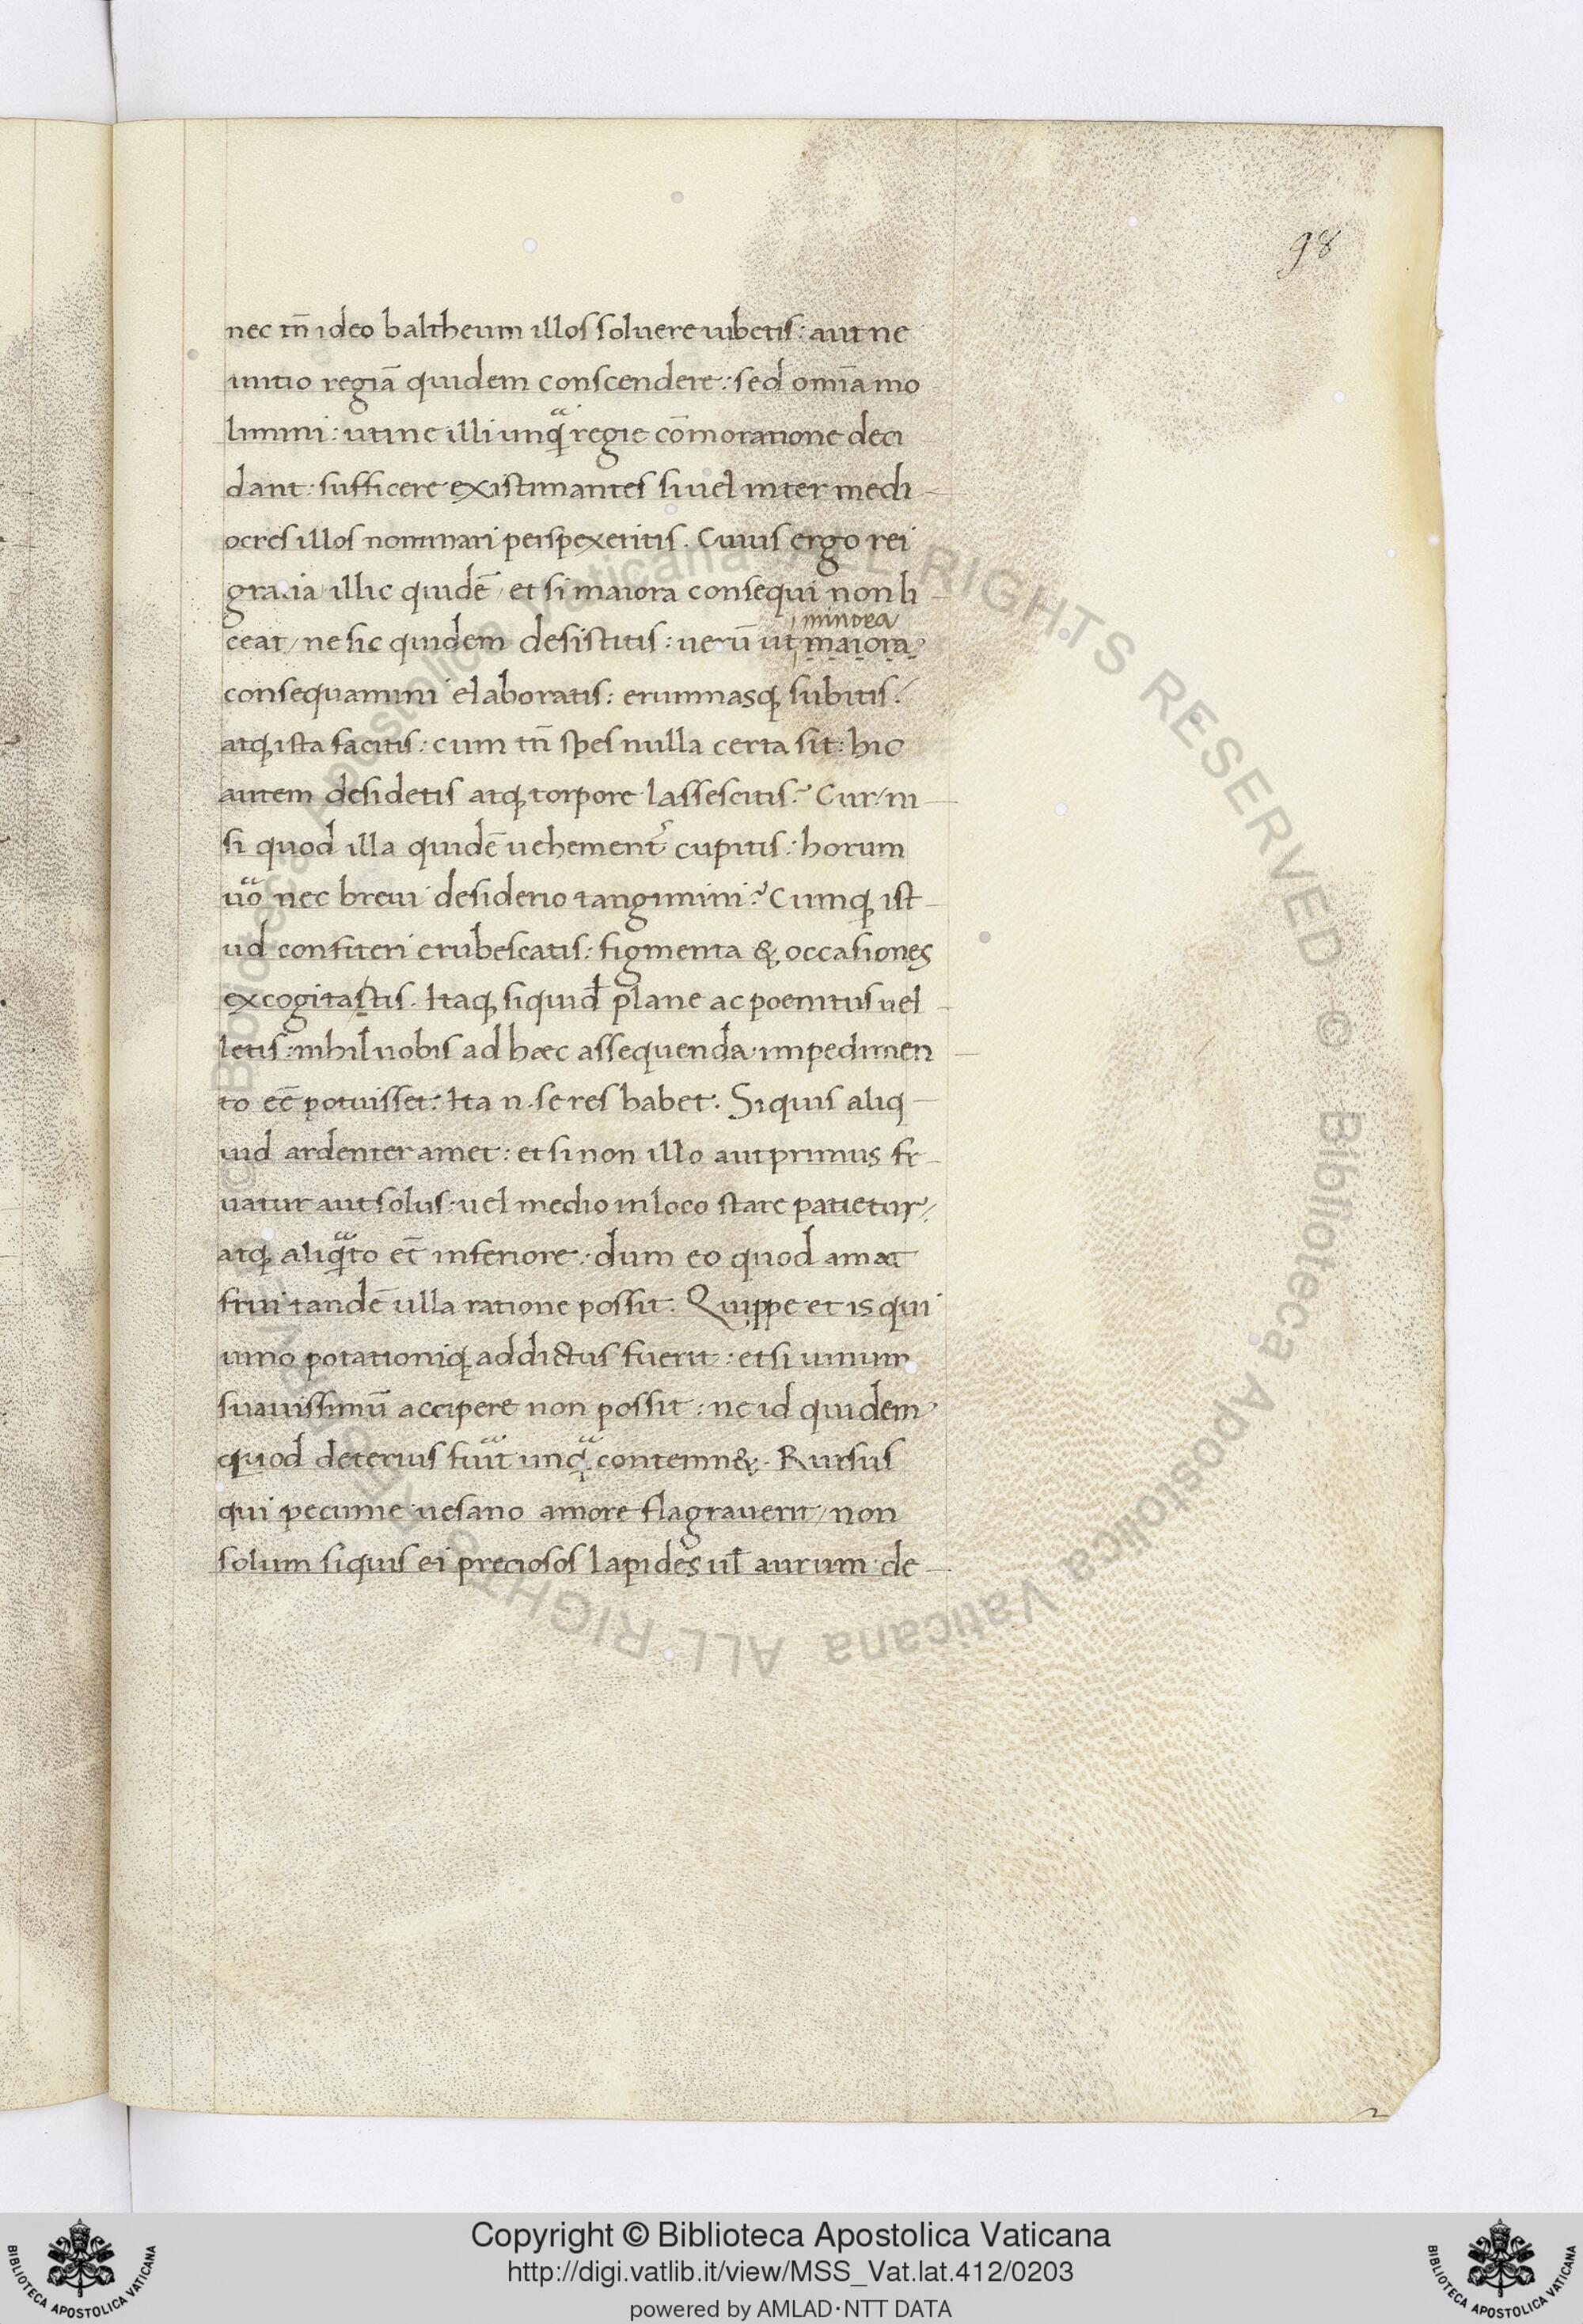 98
nec tn̄ ideo baltheum illos soluere iubetis: aut ne
initio regiā quidem conscendere: sed omīa mo
limini: uti ne illi unq̃ regie cōmoratione deci
dant: sufficere existimantes si uel inter medi
ocres illos nominari perspexeritis. Cuius ergo rei
gratia / illic quidē / et si maiora consequi non li
ceat / ne sic quidem desistitis: uerū ut maiora
minora
consequamini elaboratis: erumnasq; subitis /
atq; ista facitis: cum tn̄ spes nulla certa sit: hic
autem desidetis atq; torpore lassescitis? Cur / ni
si quod illa quidē uehement̛ cupitis: horum
uoᷓ nec breui desiderio tangimini? Cumq; ist
ud confiteri erubescatis: figmenta & occasiones
excogitastis. Itaq; siquid̄ plane ac poenitus uel
letis: nihil uobis ad hæc assequenda impedimen
to eē potuisset. Ita n. se res habet. Si quis aliq
uid ardenter amet: et si non illo aut primus fr
uatur aut solus: uel medio in loco stare patietur /
atq; aliq̃to et̄ inferiore: dum eo quod amat
frui tandē ulla ratione possit. Quippe et is qui
uino potationiq; addictus fuerit: et si uinum
suauissimū accipere non possit: ne id quidem
quod deterius fuit unq̃ contemn&. Rursus
qui pecunie uesano amore flagrauerit / non
solum siquis ei preciosos lapides ul̄ aurum de
Copyright © Biblioteca Apostolica Vaticana
http://digi.vatlib.it/view/MSS_Vat.lat.412/0203
powered by AMLAD·NTT DATA
BIBLIOTECA APOSTOLICA VATICANA
BIBLIOTECA APOSTOLICA VATICANA
© Biblioteca Apostolica Vaticana ALL RIGHTS RESERVED © Biblioteca Apostolica Vaticana ALL RIGHTS RESERVED